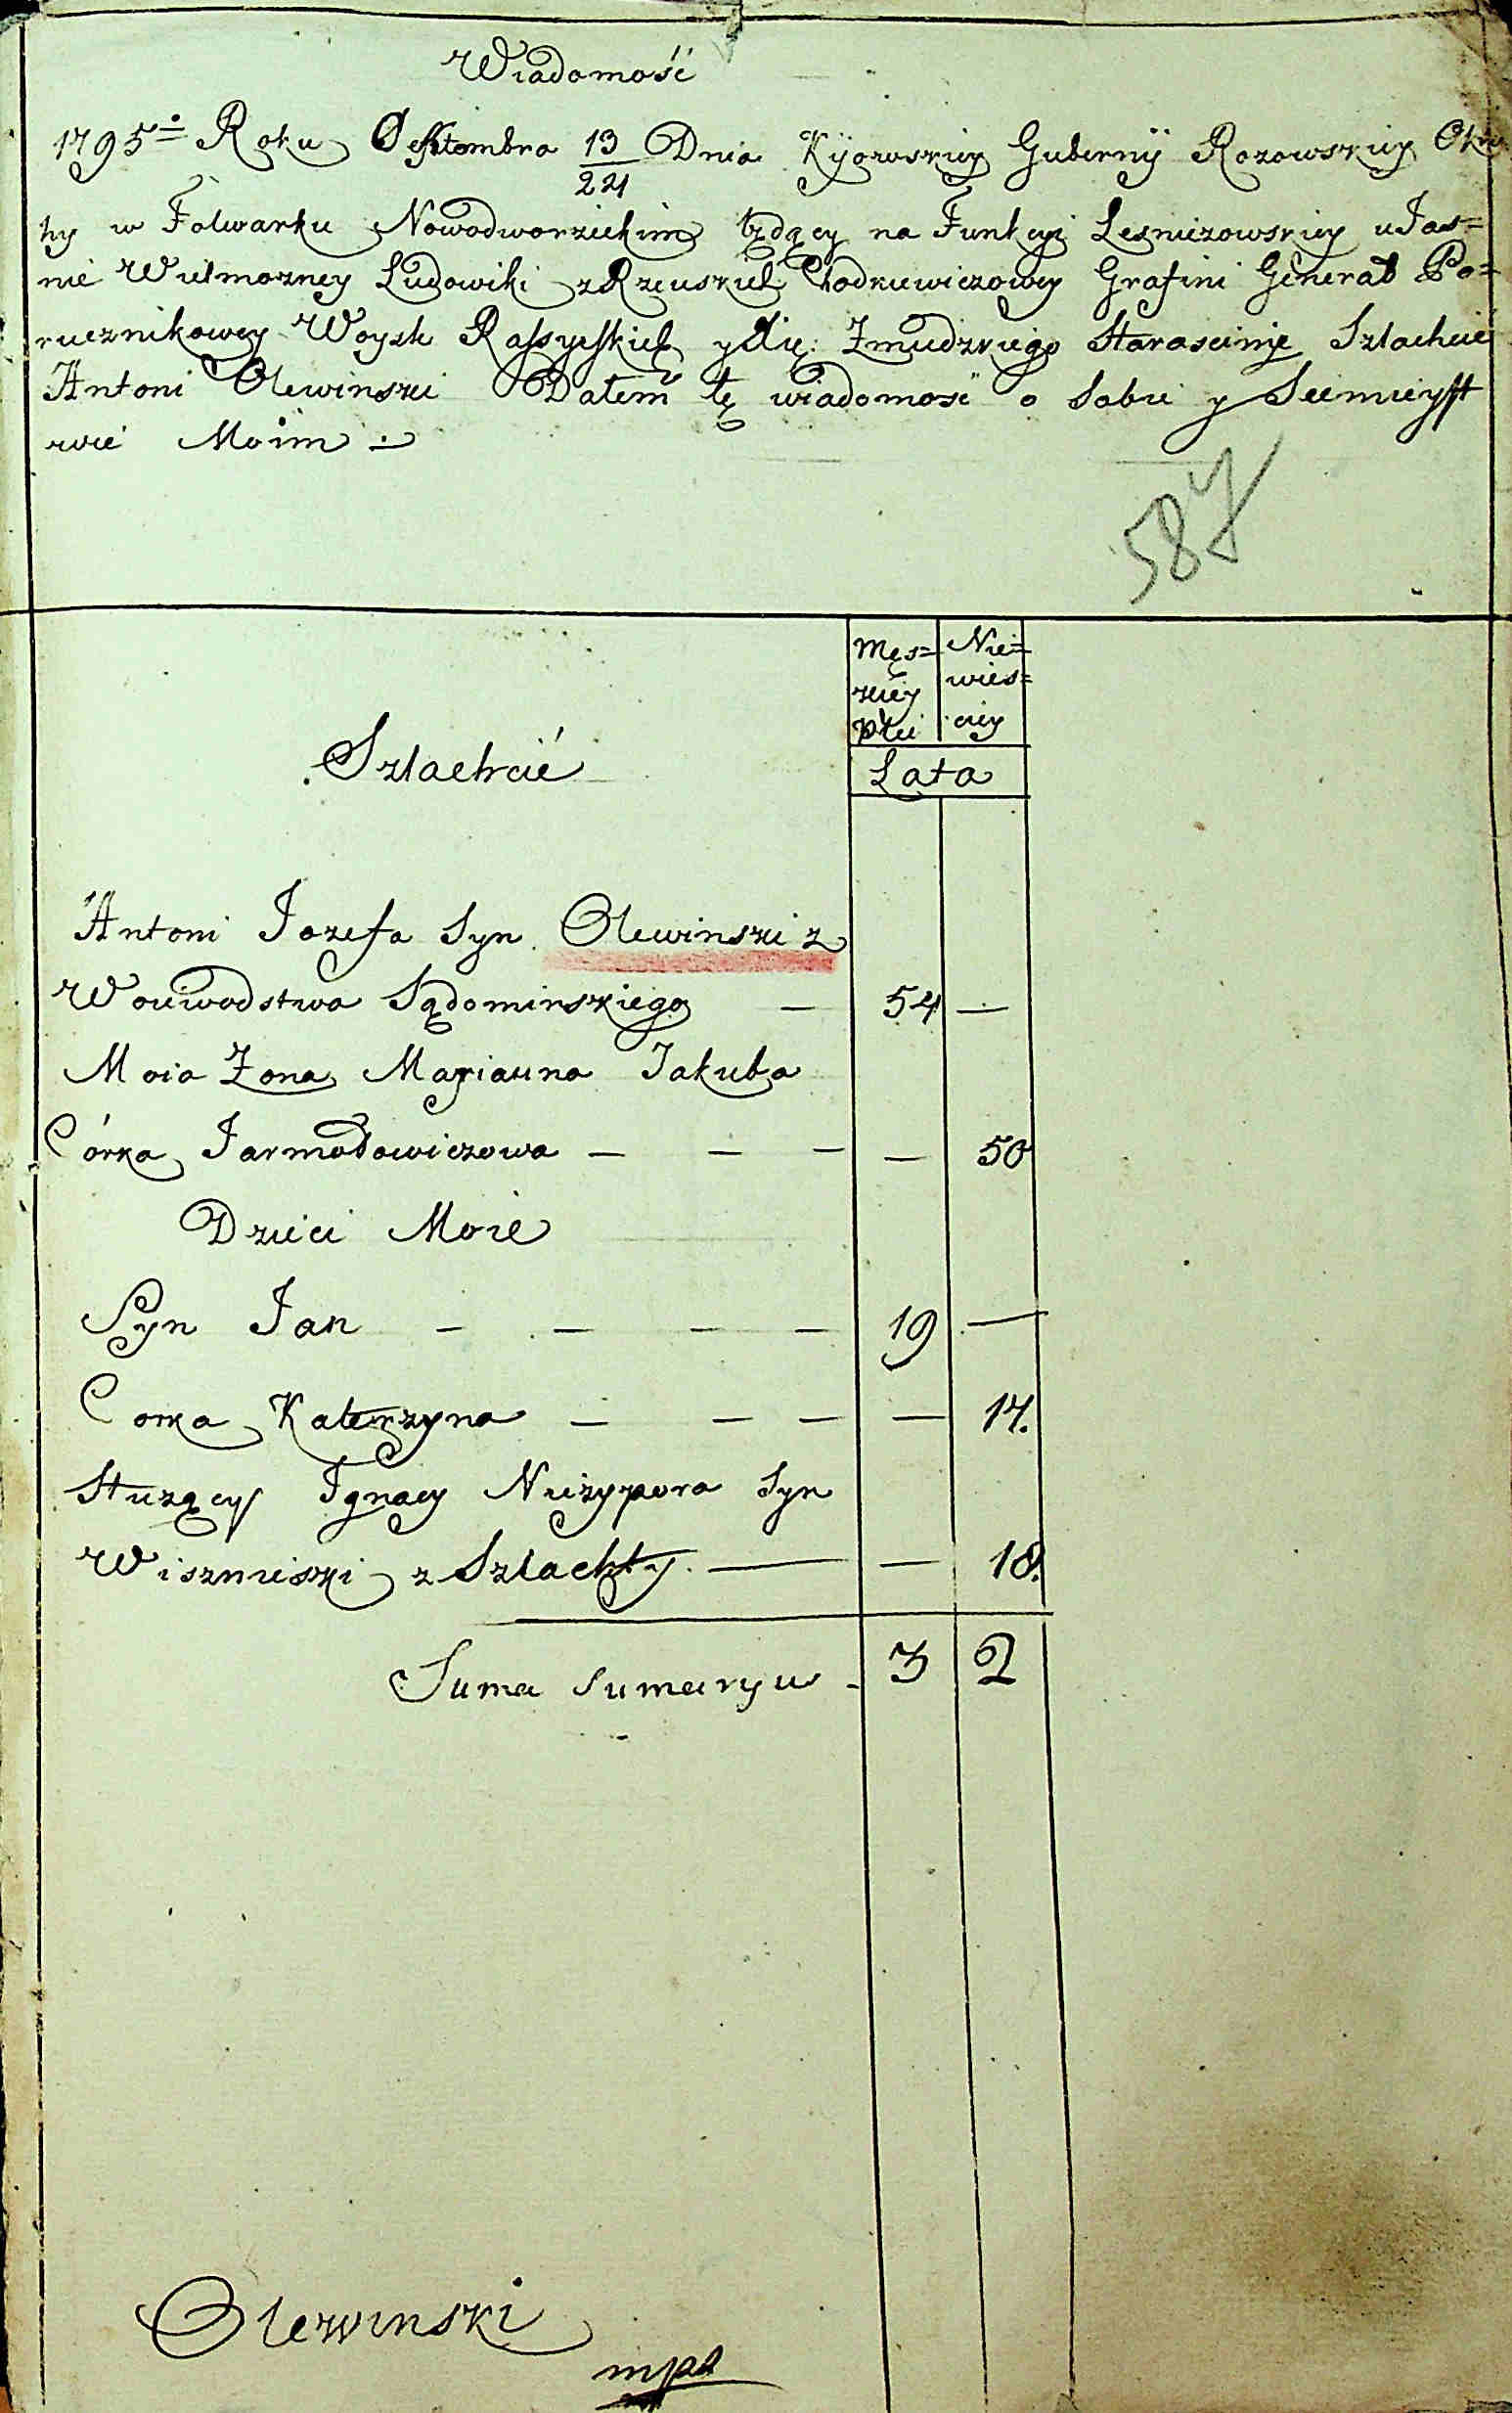 Wiadomość
1795 Roku Oktombra 13/24 Dnia Kÿowskiey Gubernÿ Rozowskiey Okru
hy w Folwarku Nowodworzickim będący na Funkcyi Lesniczowskiey u Jas=
nie Wielmozney Ludowiki z Rzeuskich Chodkiewiczowey Grafini Generał Po=
rucznikowey Woysk Rassyiskich y Xię: Zmudzkiego Starascinie Szlachcic
Antoni Olewinski Dałem tę wiadomość o Sobie y Seimieyst
wie Moim
587
Męs= Nie=
kiey wies=
Płci ciey
Szlachcić
Lata
Antoni Jozefa Syn Olewinski z
Woiewodstwa Sądomirskiego — 54 —
Moia Zona Maryanna Jakuba
Córka Jarmołowiczowa — — — — 50
Dzieci Moie
Syn Jan — — — — 19 —
Corka Katerzyna — — — — 14.
Służący Ignacy Niczypora Syn
Wisznieski z Szlachty. — — 18.
Suma Sumaryus - 3 2
Olewinski
mpa